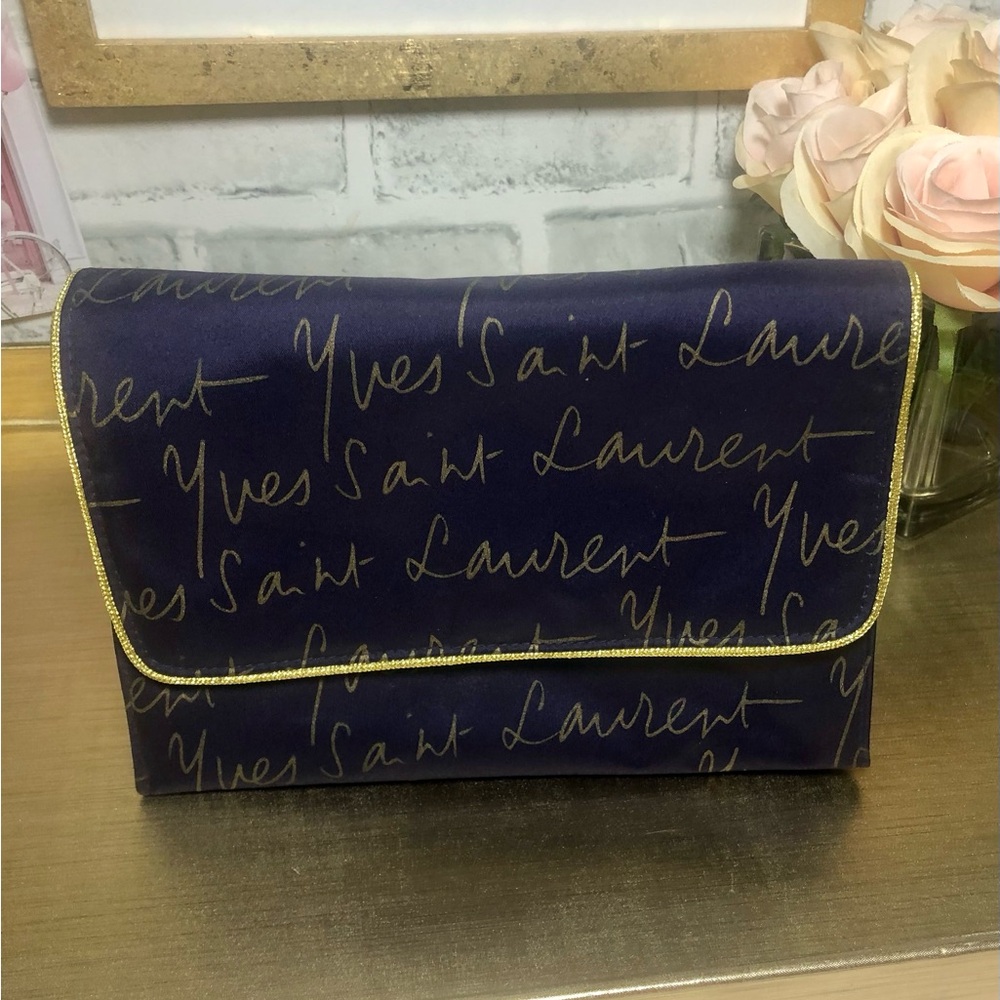 Laurent
rent Yves Saint Laure
Yves Saint Laurent
ves Saint Laurent Yves
ent Laurent Yves Sa
Yves Saint Laurent Y